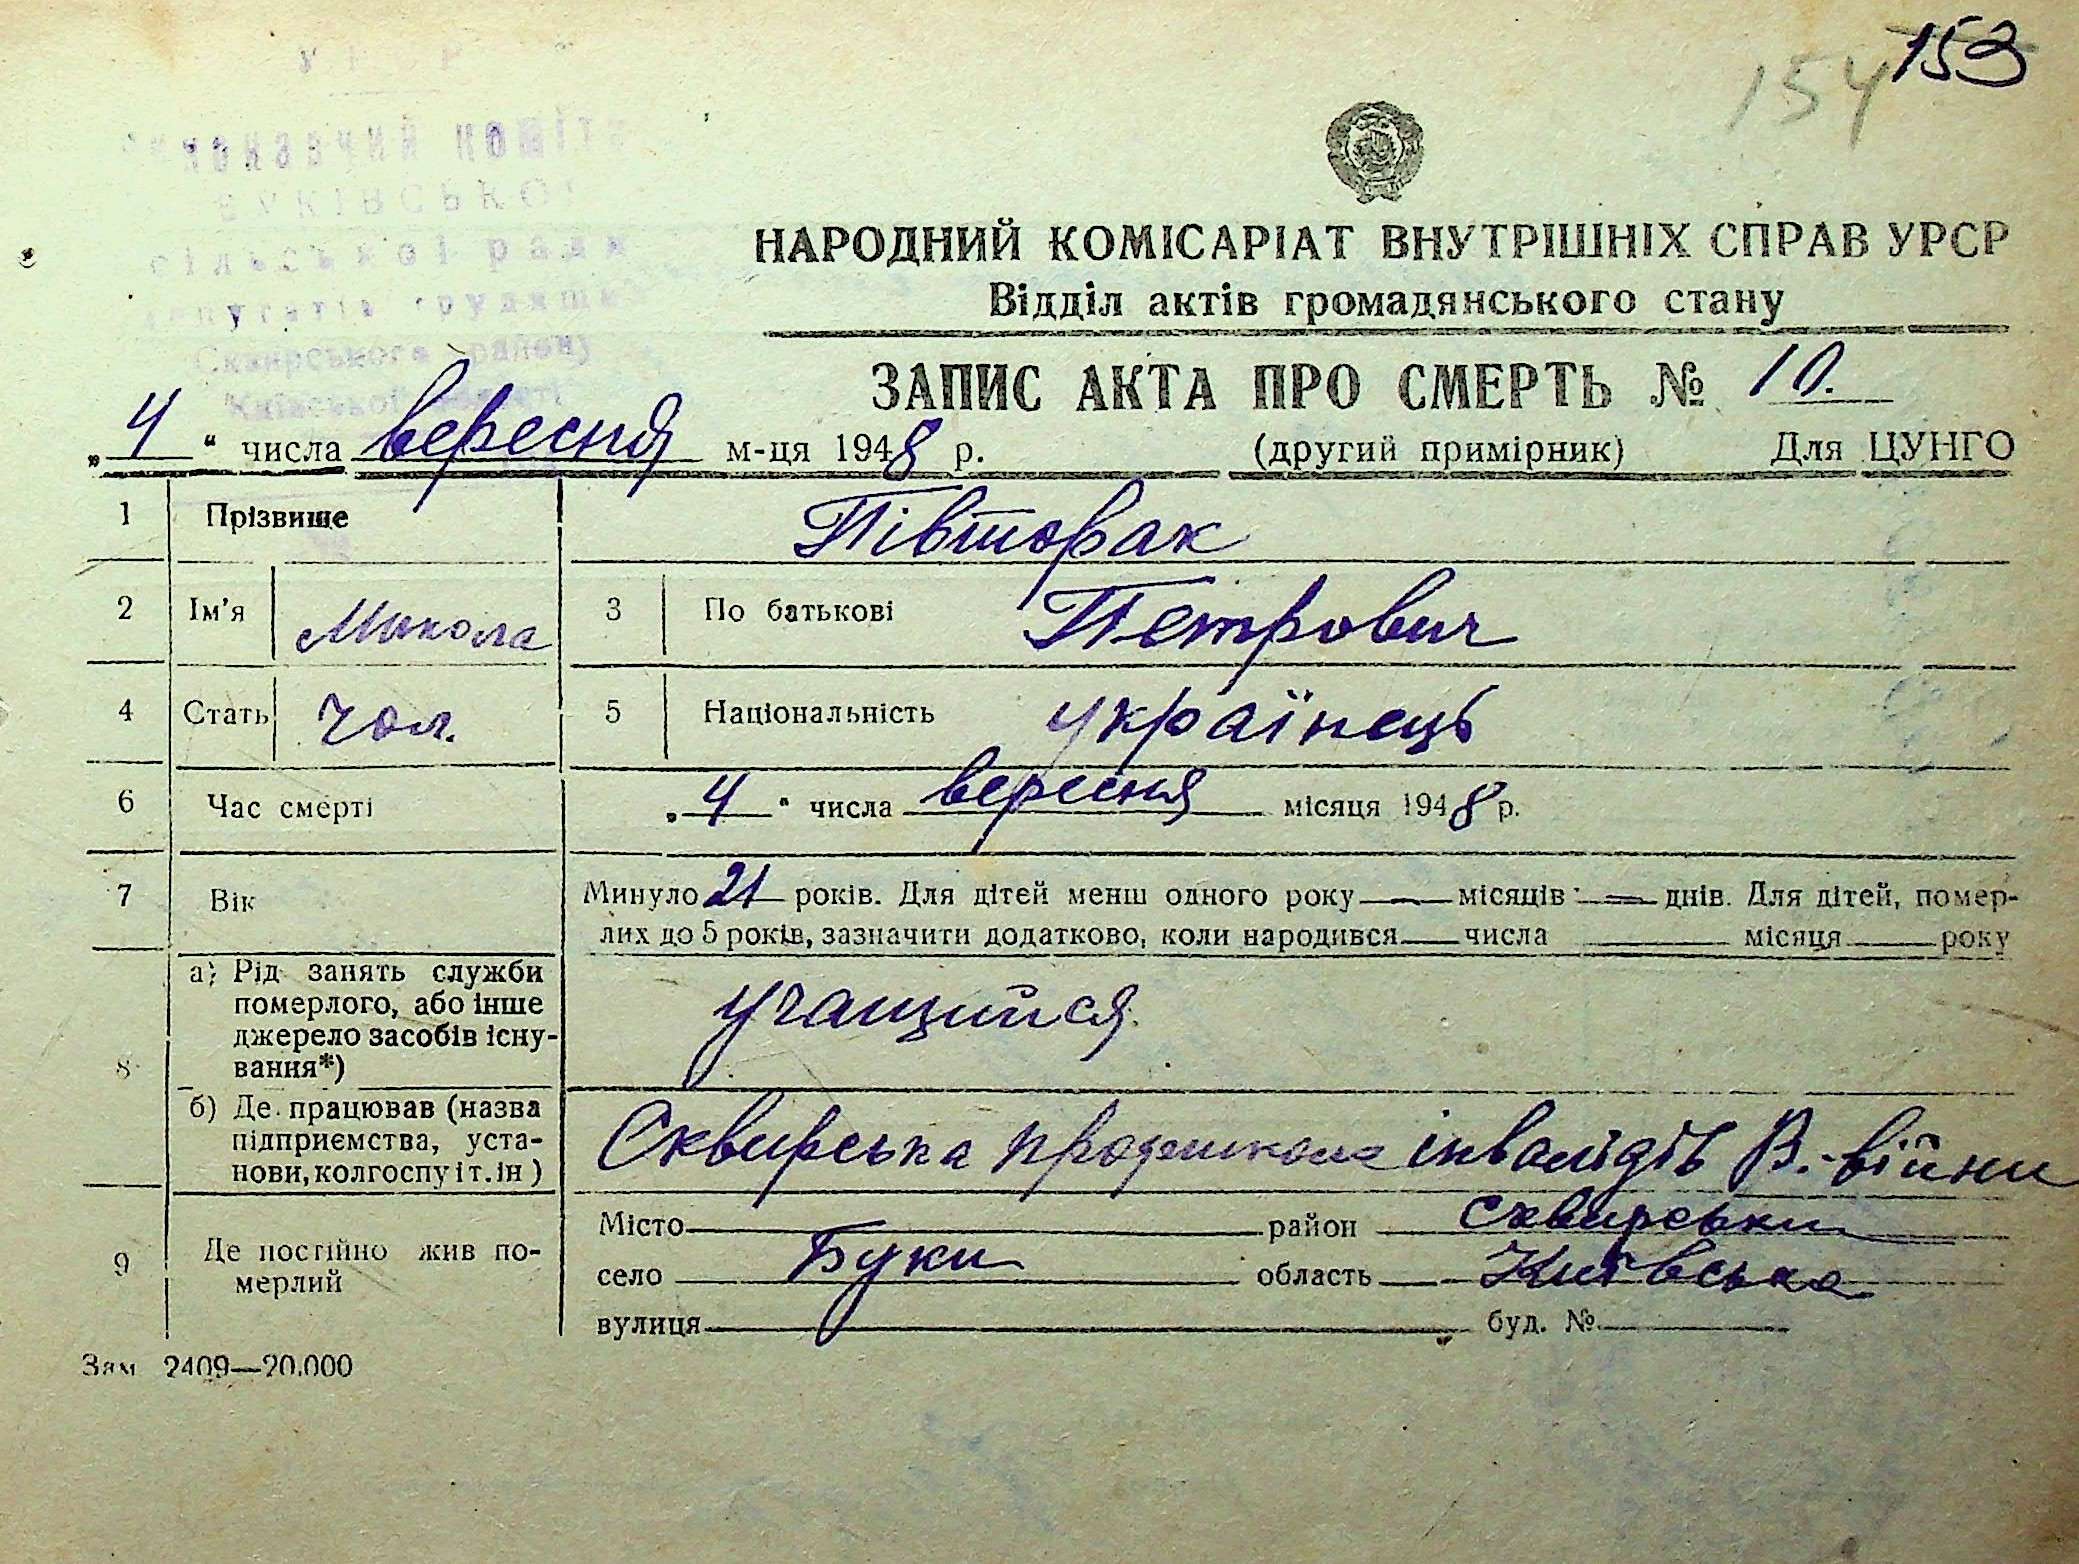 153
154
У Р С Р
Виконавчий комітет
БУКІВСЬКОЇ
сільської ради
депутатів трудящих
Сквирського району
Київської області
НАРОДНИЙ КОМІСАРІАТ ВНУТРІШНІХ СПРАВ УРСР
Відділ актів громадянського стану
ЗАПИС АКТА ПРО СМЕРТЬ № 10.
„4“ числа вересня м-ця 1948 р. (другий примірник) Для ЦУНГО
1 Прізвище Півторак
2 Ім’я Микола 3 По батькові Петрович
4 Стать чол. 5 Національність українець
6 Час смерті „4“ числа вересня місяця 1948 р.
7 Вік Минуло 21 років. Для дітей менш одного року — місяців — днів. Для дітей, помер-
лих до 5 років, зазначити додатково, коли народився — числа місяця року
8 а) Рід занять служби
померлого, або інше
джерело засобів існу-
вання*) учащийся
б) Де працював (назва
підприємства, уста-
нови, колгоспу і т. ін) Сквирська профшкола інвалідів В. війни
9 Де постійно жив по-
мерлий
Місто район Сквирський
село Буки область Київська
вулиця буд. №
Зам 2409—20.000